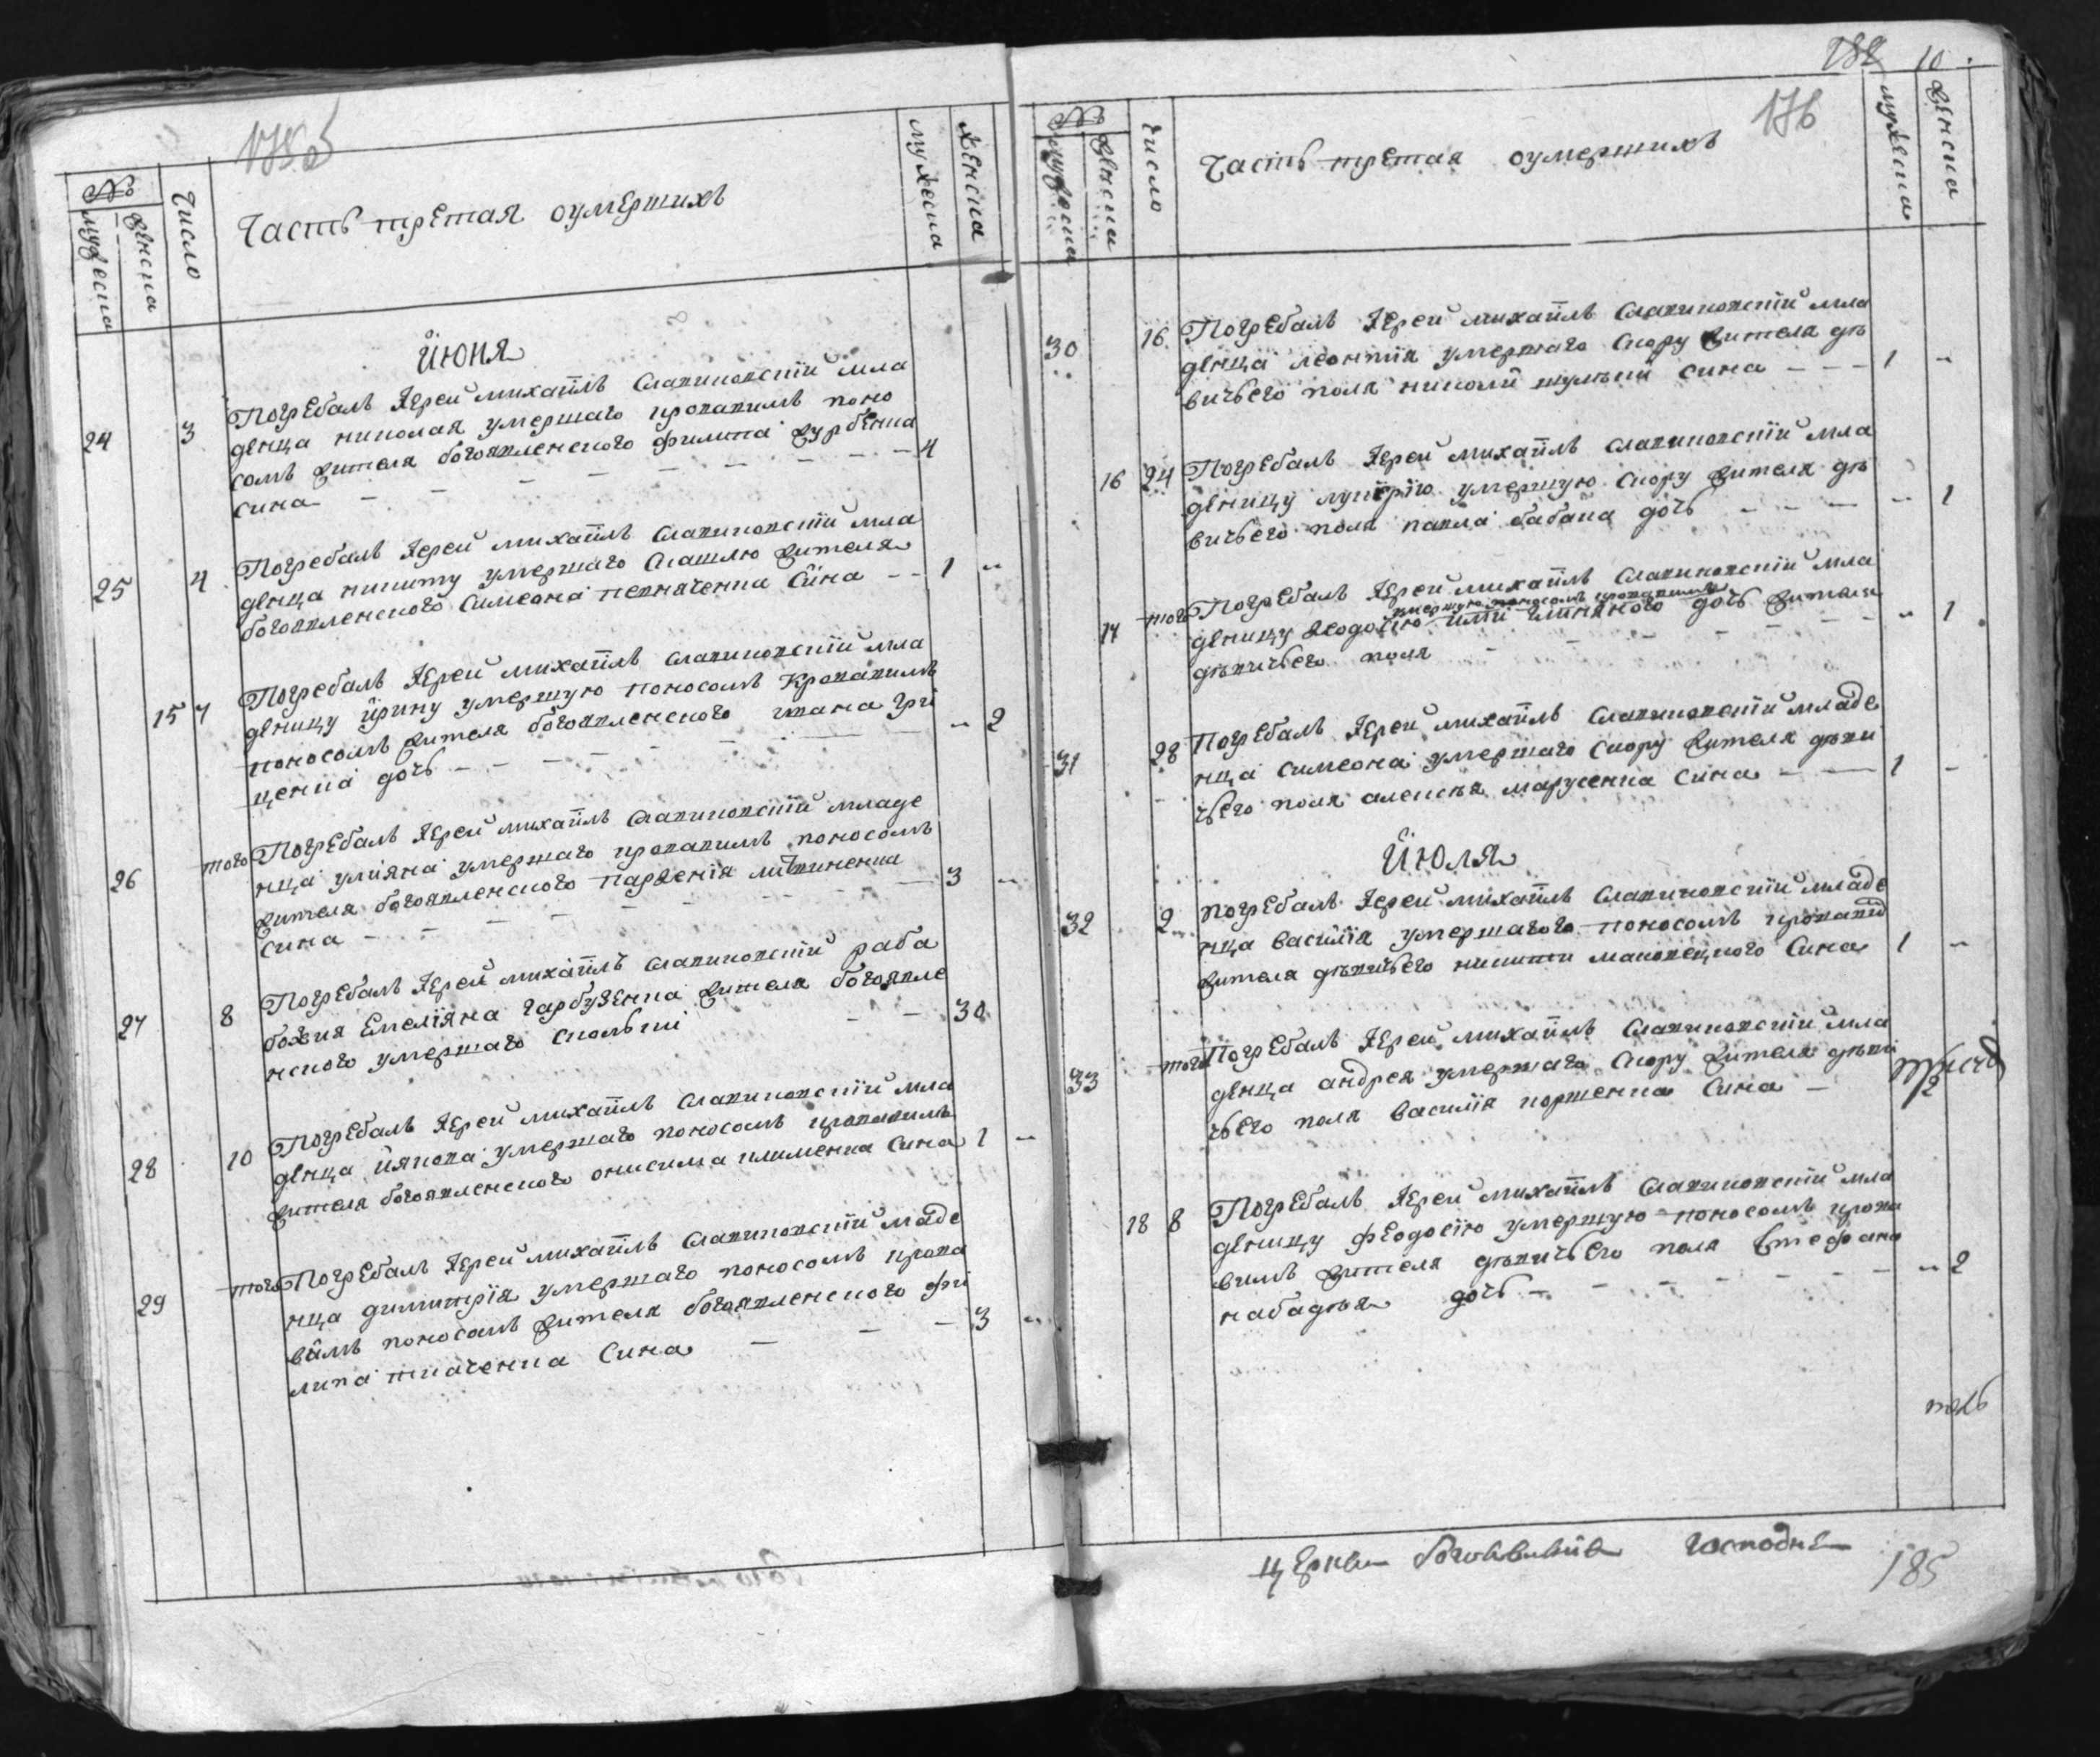 175 б
№
мужеска
женска
Число
Часть третая оумершихъ
мужеска
женска
Июня
24 3 Погребалъ Иерей михаилъ Славиковскій мла
денца николая умершаго кровавимъ поно
сомъ жителя богоявленского филипа журбенка
сина — — — — — — — 4
25 4 Погребалъ Иерей михаилъ Славиковскій мла
денца никиту умершаго Скашлю жителя
богоявленского Симеона Сина - - 1 -
15 7 Погребалъ Иерей михаилъ Славиковскій мла
деницу ирину умершую поносомъ Кровавимъ
поносомъ жителя богоявленского ивана гри
ценка дочь — — — — — — - 2
26 того Погребалъ Иерей михаилъ Славиковскій младе
нца улияна умершаго кровавимъ поносомъ
жителя богоявленского парфенія литвиненка
сина — — — — — — 3 -
27 8 Погребалъ Иерей михаилъ Славиковскій раба
божия Емелияна гарбузенка жителя богоявле
нского умершаго скольки — — 30
28 10 Погребалъ Иерей михаилъ Славиковскій мла
денца иякова умершаго поносомъ кровавимъ
жителя богоявленского онисима клименка Сина 1 -
29 того Погребалъ Иерей михаилъ Славиковскій младе
нца димитрія умершаго поносомъ крова
вимъ поносомъ жителя богоявленского фи
липа ткаченка Сина — — — 3 -
182 10
176
№
мужеска
женска
Число
Часть третая оумершихъ
мужеска
женска
30 16 Погребалъ Иерей михаилъ Славиковскій мла
денца леонтія умершаго Скору жителя дѣ
вичьего поля николи шульги сина - - - 1 -
16 24 Погребалъ Иерей михаилъ Славиковскій мла
деницу лукерію умершую Скору жителя дѣ
вичьего поля павла бабака дочь - - - - 1
17 того Погребалъ Иерей михаилъ Славиковскій мла
умершую поносомъ кровавимъ
деницу Феодосію дочь жителя
дѣвичьего поля — — — — — — - 1
31 28 Погребалъ Иерей михаилъ Славиковскій младе
нца симеона умершаго Скору жителя дѣви
чьего поля алексѣя марусенка Сина — — 1 -
Июля
32 2 Погребалъ Иерей михаилъ Славиковскій младе
нца василія умершагого поносомъ кровави
жителя дѣвичьего никити маковецкого Сина 1 -
33 того Погребалъ Иерей михаилъ Славиковскій мла
денца андрея умершаго Скору жителя дѣви
чьего поля василія коршенка Сина — 2
18 8 Погребалъ Иерей михаилъ Славиковскій мла
деницу феодосію умершую поносомъ крова
вимъ жителя дѣвичьего поля Стефана
набадѣя дочь — — — — — — — - 2
церкви богоявлѣния господня
185